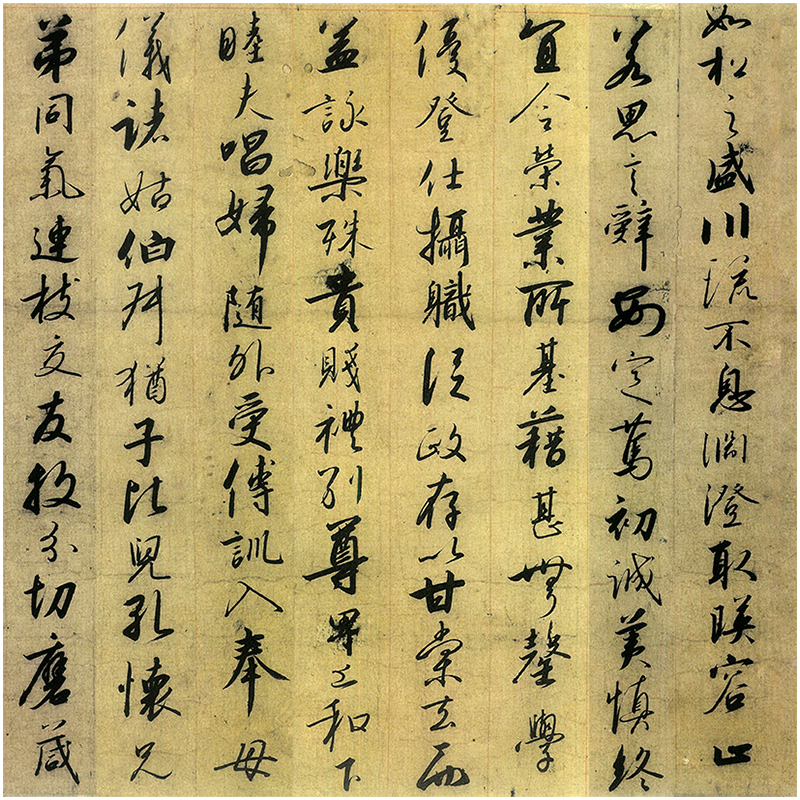 如松之盛川流不息淵澄取暎容止
若思言辭安定篤初誠美慎終
宜令榮業所基藉甚無罄學
優登仕攝職從政存以甘棠去而
益詠樂殊貴賤禮別尊卑上和下
睦夫唱婦隨外受傅訓入奉母
儀諸姑伯叔猶子比兒孔懷兄
弟同氣連枝交友投分切磨箴